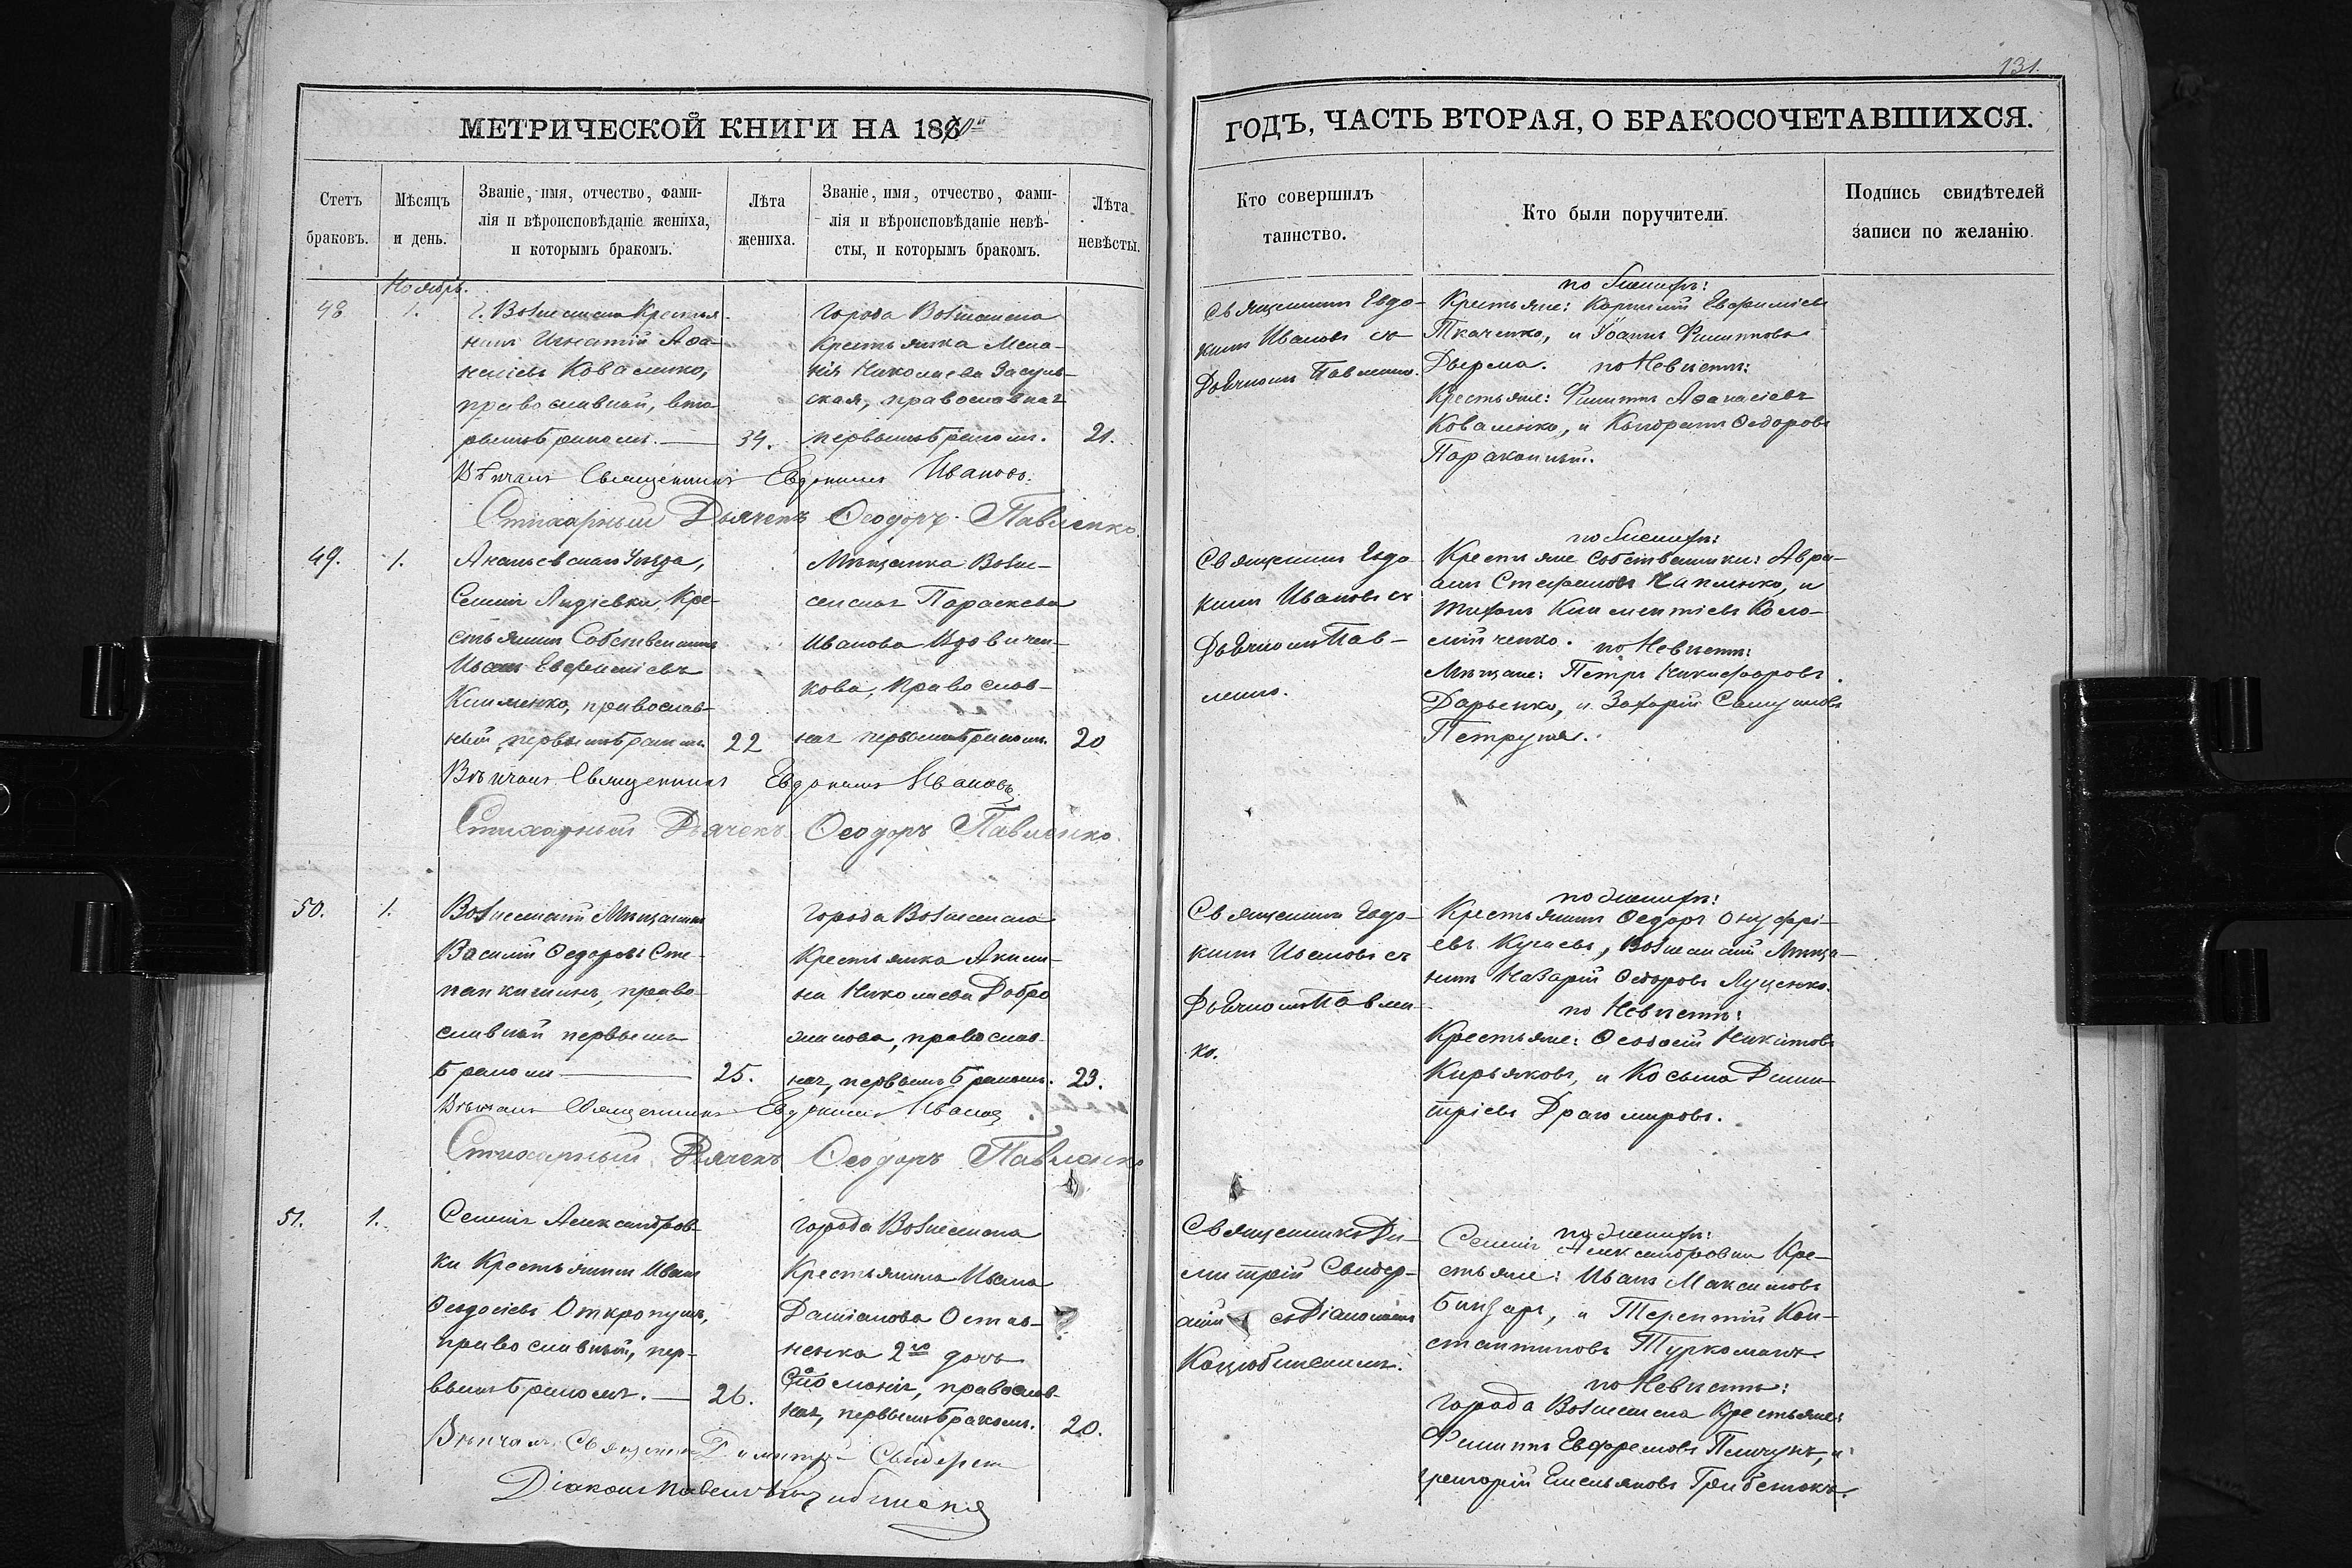 131.
МЕТРИЧЕСКОЙ КНИГИ НА 18
ГОДЪ, ЧАСТЬ ВТОРАЯ, О БРАКОСОЧЕТАВШИХСЯ.
Счетъ браковъ.
Мѣсяцъ и день.
Званіе, имя, отчество, фами-
лія и вѣроисповѣданіе жениха,
и которымъ бракомъ.
Лѣта
жениха.
Званіе, имя, отчество, фами-
лія и вѣроисповѣданіе невѣ-
сты, и которымъ бракомъ.
Лѣта
невѣсты.
Кто совершилъ
таинство.
Кто были поручители.
Подпись свидѣтелей
записи по желанію.
Ноябрь.
48
1.
г. Вознесенска Крестья-
нинъ Игнатій Аѳа-
насіевъ Коваленко,
православный, вто-
рымъ бракомъ.
34.
Города Вознесенска
Крестьянка Мела-
нія Николаева Засуль-
ская, православная
первымъ бракомъ.
21.
Священникъ Евдо-
кимъ Ивановъ съ
Дьячкомъ Павленко.
по Женихѣ:
Крестьяне: Корнилій Евфиміевъ
Ткаченко, и Іоаннъ Филипповъ
Дверма. по Невѣстѣ:
Крестьяне: Филиппъ Аѳанасіевъ
Коваленко, и Кондратъ Ѳедоровъ
Параконный.
Вѣнчалъ Священникъ Евдокимъ Ивановъ.
Стихарный Дьячекъ Ѳеодоръ Павленко.
49.
1.
Ананьевскаго Уѣзда,
Селенія Лидіевки, Кре-
стьянинъ Собственникъ
Иванъ Евфиміевъ
Клименко, православ-
ный, первымъ бракомъ.
22
Мѣщанка Возне-
сенская Параскева
Иванова Вдовичен-
кова, православ-
ная первымъ бракомъ.
20
Священникъ Евдо-
кимъ Ивановъ съ
Дьячкомъ Пав-
ленко.
по Женихѣ:
Крестьяне Собственники: Авра-
амъ Стефановъ Чапленко, и
Климентіевъ Коло-
мійченко. по Невѣстѣ:
Мѣщане: Петръ Никифоровъ
Дарьенко, и Захарій Самуиловъ
Петруня.
Вѣнчалъ Священникъ Евдокимъ Ивановъ
Стихарный Дьячекъ Ѳеодоръ Павленко.
50.
1.
Вознесенскій Мѣщанинъ
Василій Ѳедоровъ Сте-
панкинъ, право-
славный первымъ
бракомъ
25.
Города Вознесенска
Крестьянка Акили-
на Николаева Добро
православ-
ная, первымъ бракомъ.
23.
Священникъ Евдо-
кимъ Ивановъ съ
Дьячкомъ Павлен-
ко.
по Женихѣ:
Крестьянинъ Ѳедоръ Онуфрі-
евъ Вознесенскій Мѣща-
нинъ Назарій Ѳедоровъ Луценко.
по Невѣстѣ:
Крестьяне: Ѳеодосій Никитовъ
Кирьяковъ, и Косьма Дими-
тріевъ Драгомировъ.
Вѣнчалъ Священникъ Евдокимъ Ивановъ
Стихарный Дьячекъ Ѳеодоръ Павленко
51.
1.
Селенія Александров-
ки Крестьянинъ Иванъ
Ѳеодосіевъ
православный, пер-
вымъ бракомъ.
26.
Города Вознесенска
Крестьянина Ивана
Даміанова Оста-
пенка 2я дочь
Соломонія, православ-
ная, первымъ бракомъ.
20.
Священникъ Ди-
митрій Свидер-
скій съ Діакономъ
Коцюбинскимъ.
по Женихѣ:
Селенія Александровки Кре-
стьяне: Иванъ Максимовъ
Бинзаръ, и Терентій Кон-
стантиновъ Туркоманъ.
по Невѣстѣ:
Города Вознесенска Крестьяне:
Филиппъ Евфремовъ и
Григорій Емельяновъ
Вѣнчалъ Священникъ Димитрій Свидерскій
Діаконъ Павелъ Коцюбинскій